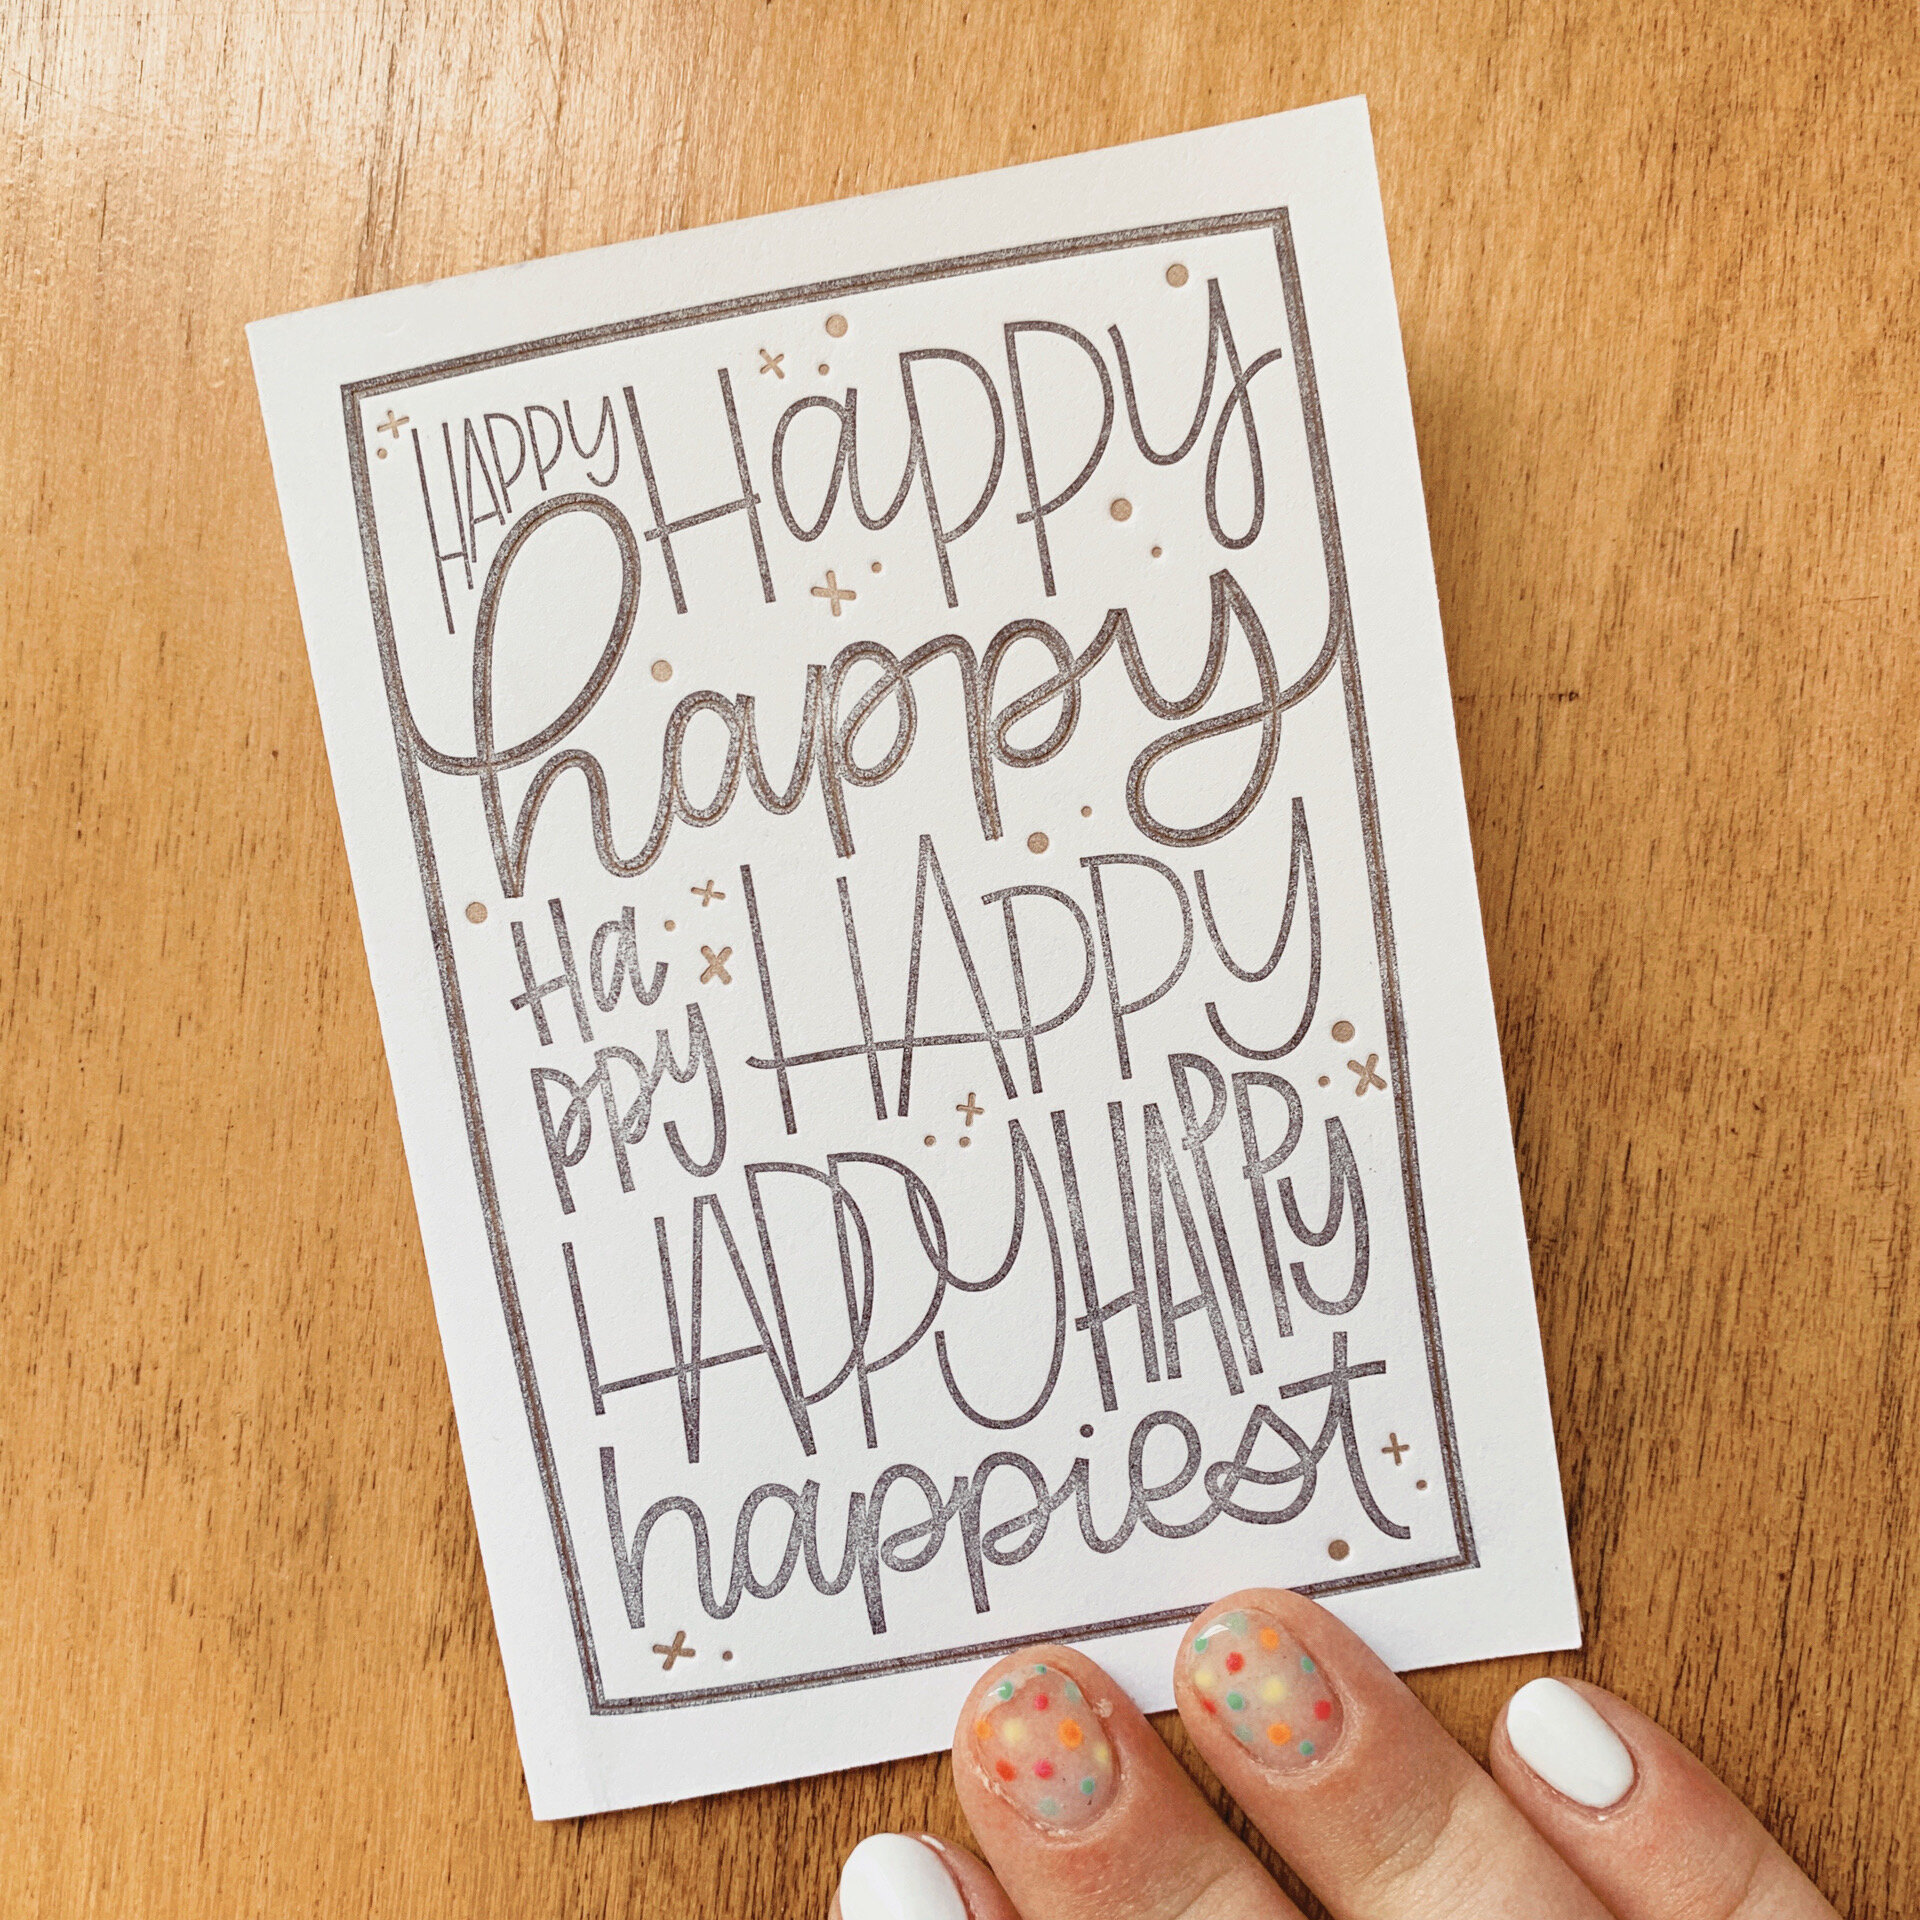 HAPPY Happy
happy
Ha
ppy HAPPY
HAPPY HAPPY
happiest